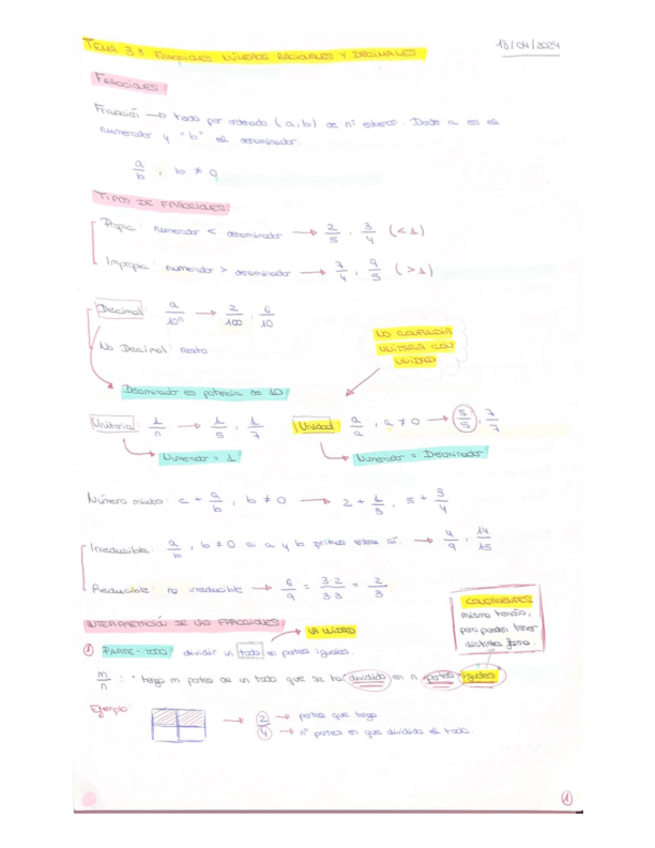 TEMA 3: FRACCIONES, NÚMEROS RACIONALES Y DECIMALES 18/04/2024
FRACCIONES
Fracción → todo par ordenado (a, b) de nº enteros. Donde a es el
numerador y "b" el denominador.
a/b , b ≠ 0
TIPOS DE FRACCIONES
Propia: numerador < denominador → 2/5 , 3/4 (< 1)
Impropia: numerador > denominador → 7/4 , 9/5 (> 1)
Decimal: a/10ⁿ → 2/100 , 6/10
NO CONFUNDIR
UNITARIA CON
UNIDAD
No Decimal: resto
Denominador es potencia de 10
Unitaria: 1/n → 1/5 , 1/7 Unidad: a/a , a ≠ 0 → 5/5 , 7/7
Numerador = 1 Numerador = Denominador
Número mixto: c + a/b , b ≠ 0 → 2 + 1/3 , 5 + 3/4
Irreducible: a/b , b ≠ 0 si a y b primos entre sí. → 4/9 , 14/15
Reducible: no irreducible → 6/9 = 3·2/3·3 = 2/3
CONGRUENTES
mismo tamaño,
pero pueden tener
distinta forma.
INTERPRETACIÓN DE LAS FRACCIONES
LA UNIDAD
1 PARTE-TODO: dividir un todo en partes iguales.
m/n : "tengo m partes de un todo que se ha dividido en n partes iguales"
Ejemplo: → 2 → partes que tengo
4 → nº partes en que dividido el todo.
1